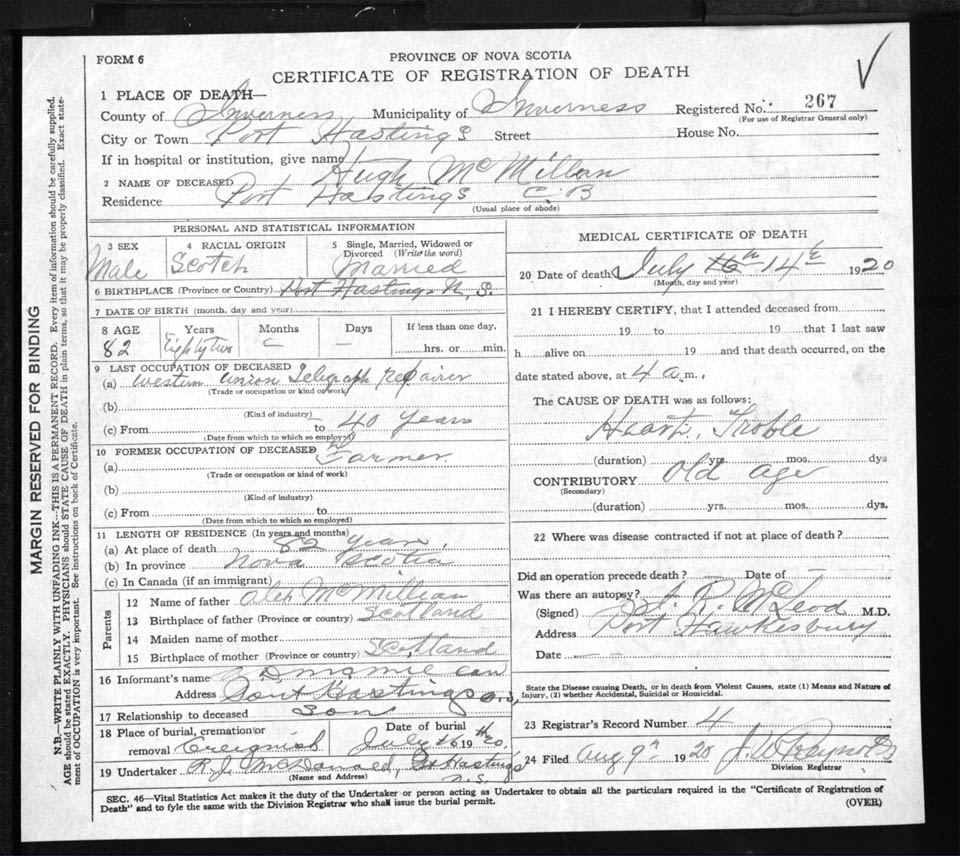 FORM 6
PROVINCE OF NOVA SCOTIA
CERTIFICATE OF REGISTRATION OF DEATH
1 PLACE OF DEATH—
County of Inverness Municipality of Inverness Registered No. 267
(For use of Registrar General only)
City or Town Port Hastings Street House No.
If in hospital or institution, give name
2 NAME OF DECEASED Hugh McMillan
Residence Port Hastings C.B
(Usual place of abode)
PERSONAL AND STATISTICAL INFORMATION
3 SEX 4 RACIAL ORIGIN 5 Single, Married, Widowed or Divorced (Write the word)
Male Scotch Married
6 BIRTHPLACE (Province or Country) Port Hastings N.S.
7 DATE OF BIRTH (month, day and year)
8 AGE Years Months Days If less than one day,
82 Eighty two — — hrs. or min.
9 LAST OCCUPATION OF DECEASED
(a) Western Union Telegraph repairer
(Trade or occupation or kind of work)
(b)
(Kind of industry)
(c) From to 40 years
(Date from which to which so employed)
10 FORMER OCCUPATION OF DECEASED
(a) Farmer
(Trade or occupation or kind of work)
(b)
(Kind of industry)
(c) From to
(Date from which to which so employed)
11 LENGTH OF RESIDENCE (In years and months)
(a) At place of death 82 years
(b) In province Nova Scotia
(c) In Canada (if an immigrant)
Parents
12 Name of father Alex McMillan
13 Birthplace of father (Province or country) Scotland
14 Maiden name of mother
15 Birthplace of mother (Province or country) Scotland
16 Informant's name
Address Port Hastings
17 Relationship to deceased Son
18 Place of burial, cremation or removal Creignish Date of burial July 16th 1920
19 Undertaker R.J. McDonald, Pt Hastings N.S.
(Name and Address)
MEDICAL CERTIFICATE OF DEATH
20 Date of death July 16th 14th 1920
(Month, day and year)
21 I HEREBY CERTIFY, that I attended deceased from
19 to 19 that I last saw
h alive on 19 and that death occurred, on the
date stated above, at 4 a.m.,
The CAUSE OF DEATH was as follows:
Heart Troble
(duration) yrs. mos. dys
CONTRIBUTORY Old age
(Secondary)
(duration) yrs. mos. dys.
22 Where was disease contracted if not at place of death?
Did an operation precede death? — Date of —
Was there an autopsy?
(Signed) McLeod M.D.
Address Port Hawkesbury
Date — —
State the Disease causing Death, or in death from Violent Causes, state (1) Means and Nature of
Injury, (2) whether Accidental, Suicidal or Homicidal.
23 Registrar's Record Number 4
24 Filed Aug 9th 1920
Division Registrar
SEC. 46—Vital Statistics Act makes it the duty of the Undertaker or person acting as Undertaker to obtain all the particulars required in the "Certificate of Registration of
Death" and to fyle the same with the Division Registrar who shall issue the burial permit.
(OVER)
MARGIN RESERVED FOR BINDING
N.B.—WRITE PLAINLY WITH UNFADING INK—THIS IS A PERMANENT RECORD. Every item of information should be carefully supplied.
AGE should be stated EXACTLY. PHYSICIANS should STATE CAUSE OF DEATH in plain terms, so that it may be properly classified. Exact state-
ment of OCCUPATION is very important. See instructions on back of Certificate.